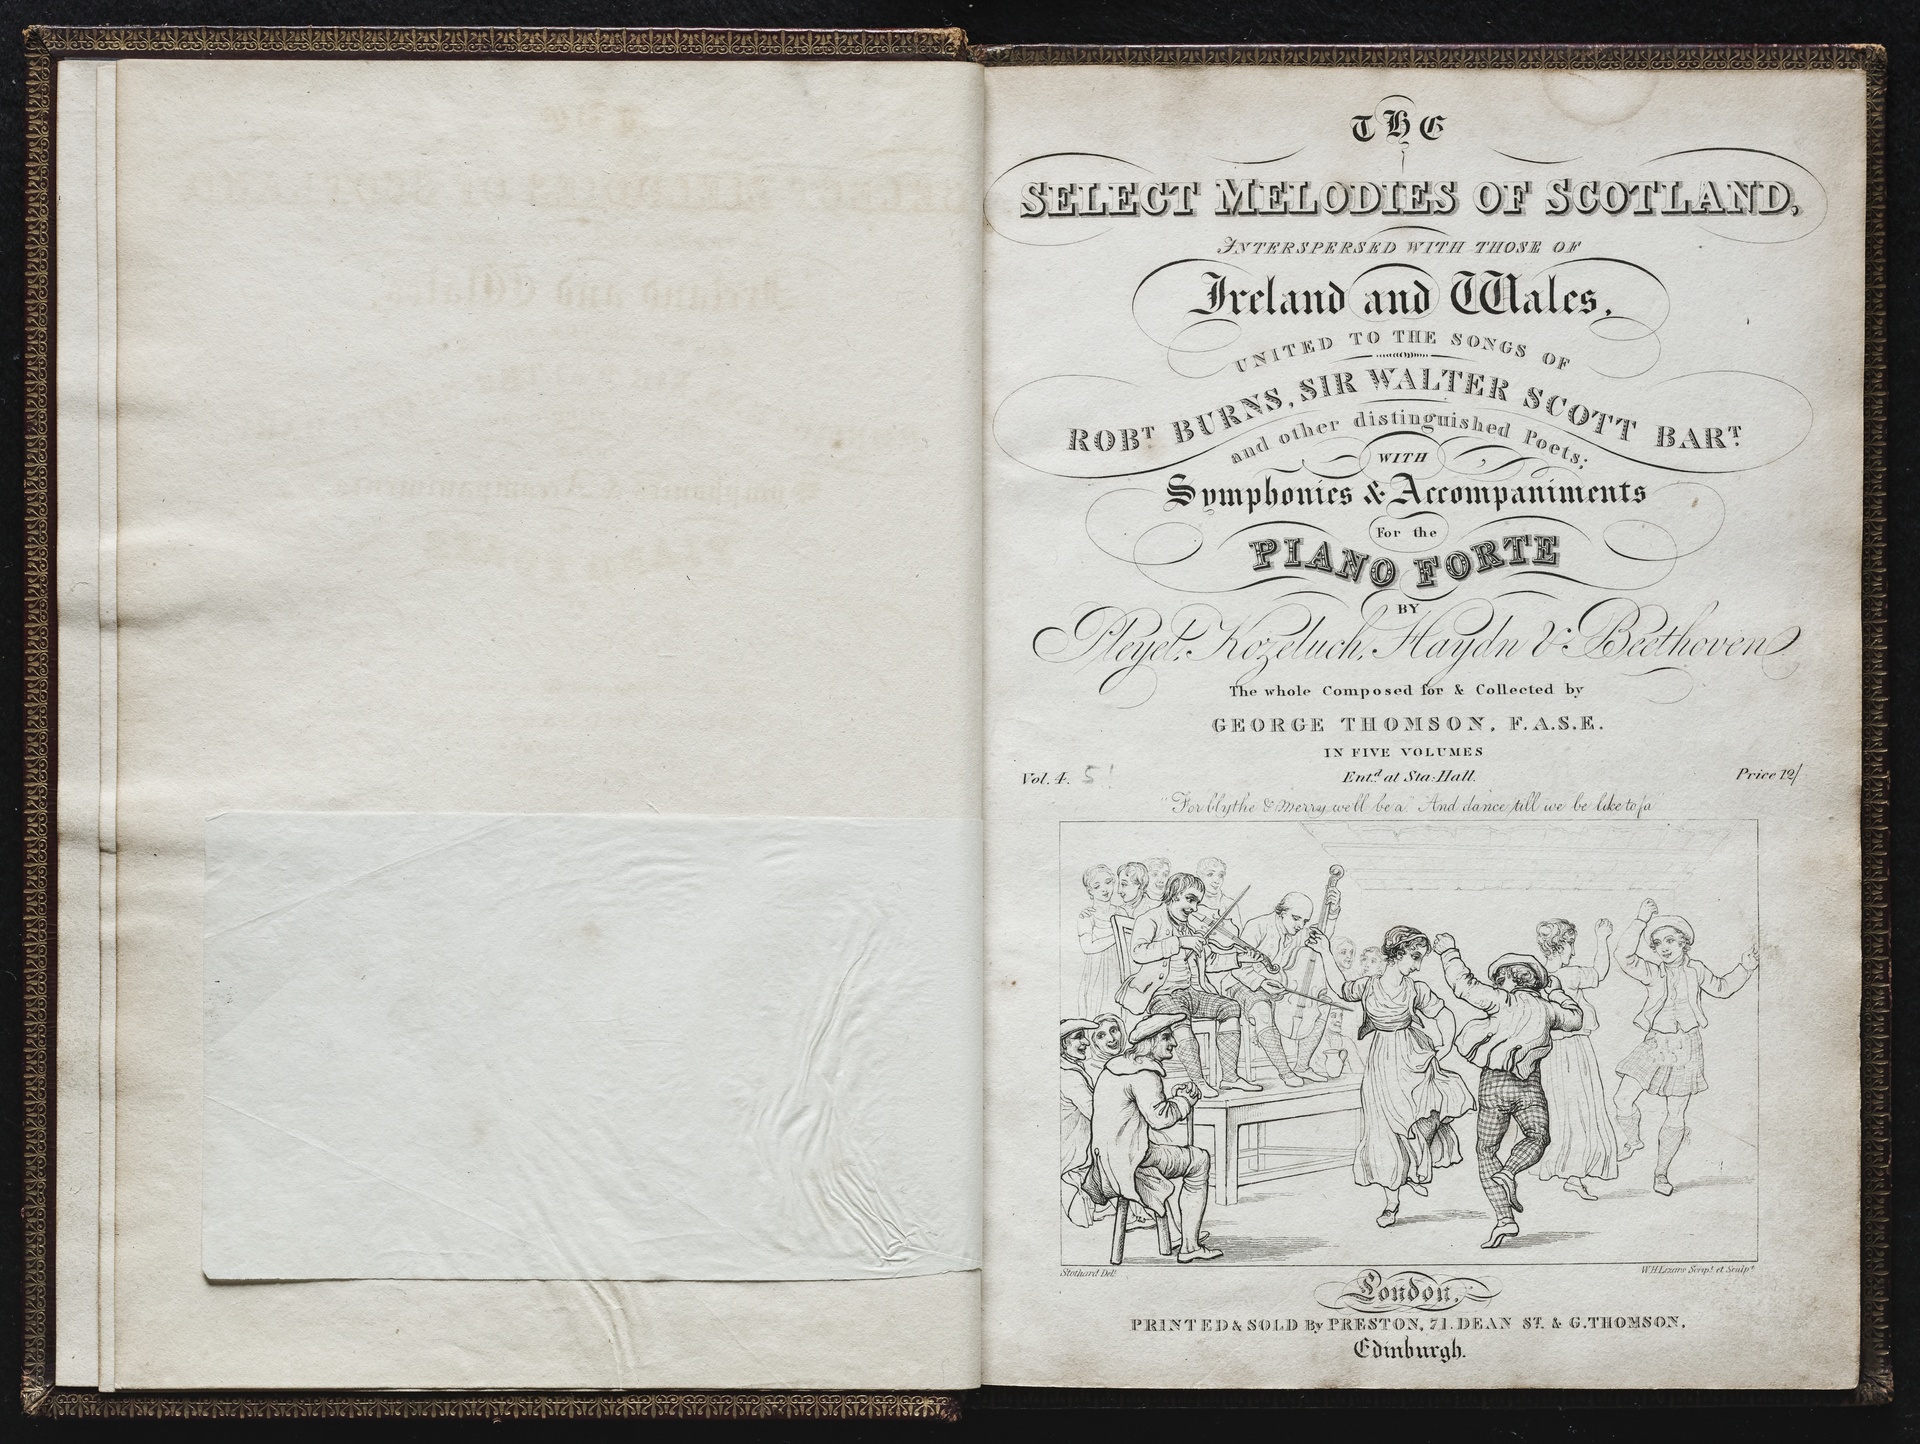 THE
SELECT MELODIES OF SCOTLAND,
INTERSPERSED WITH THOSE OF
Ireland and Wales,
UNITED TO THE SONGS OF
ROBT BURNS, SIR WALTER SCOTT BART.
and other distinguished Poets;
WITH
Symphonies & Accompaniments
For the
PIANO FORTE
BY
Pleyel, Kozeluch, Haydn & Beethoven
The whole Composed for & Collected by
GEORGE THOMSON, F.A.S.E.
IN FIVE VOLUMES
Vol. 4. 5! Entd. at Sta: Hall. Price 12/
"For blythe & merry we'll be a' And dance till we be like to fa'
Stothard Delt. W.H.Lizars Script. et Sculpt.
London,
PRINTED & SOLD By PRESTON, 71. DEAN ST. & G. THOMSON,
Edinburgh.